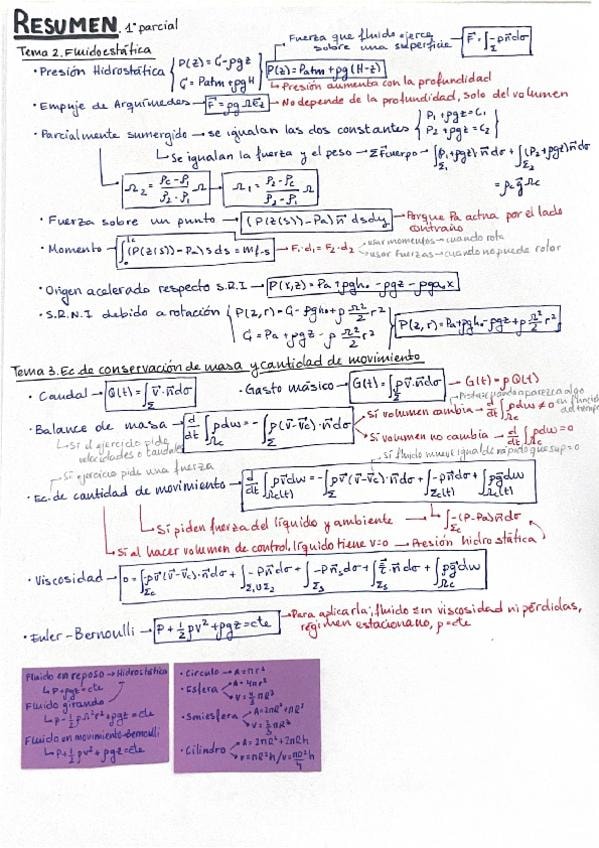 RESUMEN. 1º parcial
Tema 2. Fluidoestática
Fuerza que fluido ejerce sobre una superficie → F̄ = ∫_Σ -p n̄ dσ
· Presión Hidrostática { P(z) = C - ρgz
C = Patm + ρgH } P(z) = Patm + ρg(H-z)
↳ Presión aumenta con la profundidad
· Empuje de Arquímedes → F̄ = ρg Ω e̅z → No depende de la profundidad, solo del volumen
· Parcialmente sumergido → se igualan las dos constantes { P₁ + ρgz = C₁
P₂ + ρgz = C₂
↳ Se igualan la fuerza y el peso → ΣFcuerpo → ∫_Σ₁ (P₁+ρgz)·n̄dσ + ∫_Σ₂ (P₂+ρgz)n̄dσ
= ρc ḡ Ωc
Ω₂ = (ρc - ρ₁)/(ρ₂ - ρ₁) Ω → Ω₁ = (ρ₂ - ρc)/(ρ₂ - ρ₁) Ω
· Fuerza sobre un punto → (P(z(s)) - Pa) n̄ ds dy → Porque Pa actua por el lado contrario
· Momento → ∫₀^lc (P(z(s)) - Pa) s ds = mf-s → F₁·d₁ = F₂·d₂
usar momentos → cuando rota
usar fuerzas → cuando no puede rotar
· Origen acelerado respecto S.R.I → P(x,z) = Pa + ρgh₀ - ρgz - ρa₀x
· S.R.N.I debido a rotación { P(z,r) = C - ρgh₀ + ρ Ω²/2 r²
C = Pa + ρgz - ρ Ω²/2 r² } P(z,r) = Pa + ρgh₀ - ρgz + ρ Ω²/2 r²
Tema 3. Ec de conservación de masa y cantidad de movimiento
· Caudal → Q(t) = ∫_Σ v̄·n̄dσ · Gasto másico → G(t) = ∫_Σ ρv̄·n̄dσ → G(t) = ρQ(t)
· Balance de masa → d/dt ∫_Ωc ρdω = - ∫_Σ ρ(v̄-v̄c)·n̄dσ
Si volumen cambia → d/dt ∫_Ωc ρdω ≠ 0
Si volumen no cambia → d/dt ∫_Ωc ρdω = 0
↳ Si el ejercicio pide velocidades o caudales
Si ejercicio pide una fuerza
· Ec. de cantidad de movimiento → d/dt ∫_Ωc(t) ρv̄dω = - ∫_Σ ρv̄(v̄-v̄c)·n̄dσ + ∫_Σc(t) -pn̄dσ + ∫_Ωc(t) ρḡdω
↳ Si piden fuerza del líquido y ambiente → ∫_Σc -(P-Pa)n̄dσ
↳ Si al hacer volumen de control, líquido tiene v=0 → Presión hidrostática
· Viscosidad → 0 = ∫_Σc -ρv̄(v̄-v̄c)·n̄dσ + ∫_Σ₁∪Σ₂ -Pn̄dσ + ∫_Σ₃ -Pn̄₃dσ + ∫_Σ₃ τ̄·n̄dσ + ∫_Ωc ρḡdω
· Euler-Bernoulli → P + ½ρv² + ρgz = cte → Para aplicarla; fluido sin viscosidad ni pérdidas, régimen estacionario, ρ=cte
Fluido en reposo → Hidrostática
↳ P+ρgz = cte
Fluido girando
↳ P-½ρΩ²r²+ρgz = cte
Fluido en movimiento → Bernoulli
↳ P+½ρv²+ρgz = cte
· Circulo → A=πr²
· Esfera → A=4πr²
V=4/3 πR³
· Smiesfera → A=2πR²+πR²
V=2/3 πR³
· Cilindro → A=2πR²+2πRh
V=πR²h / V=πD²/4 h